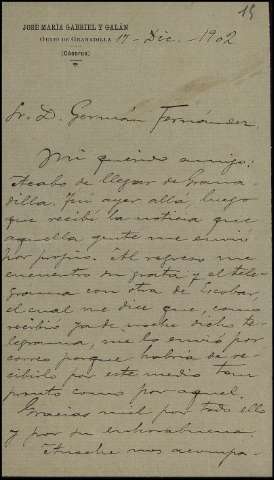 15
JOSÉ MARÍA GABRIEL Y GALÁN
GUIJO DE GRANADILLA
(CÁCERES)
17 - Dic. - 1902
Sr. D. Germán Fernández.
Mi querido amigo:
Acabo de llegar de Grana-
dilla. Fuí ayer allá, luego
que recibí la noticia que
aquella gente me envió
por propio. Al regreso me
encuentro su grata y el tele-
grama con otra de Escobar,
el cual me dice que, como
recibió ya de noche dicho te-
legrama, me lo envió por
correo porque habría de re-
cibirlo por este medio tan
pronto como por aquel.
Gracias mil por todo ello
y por su enhorabuena.
Anoche nos acompa-